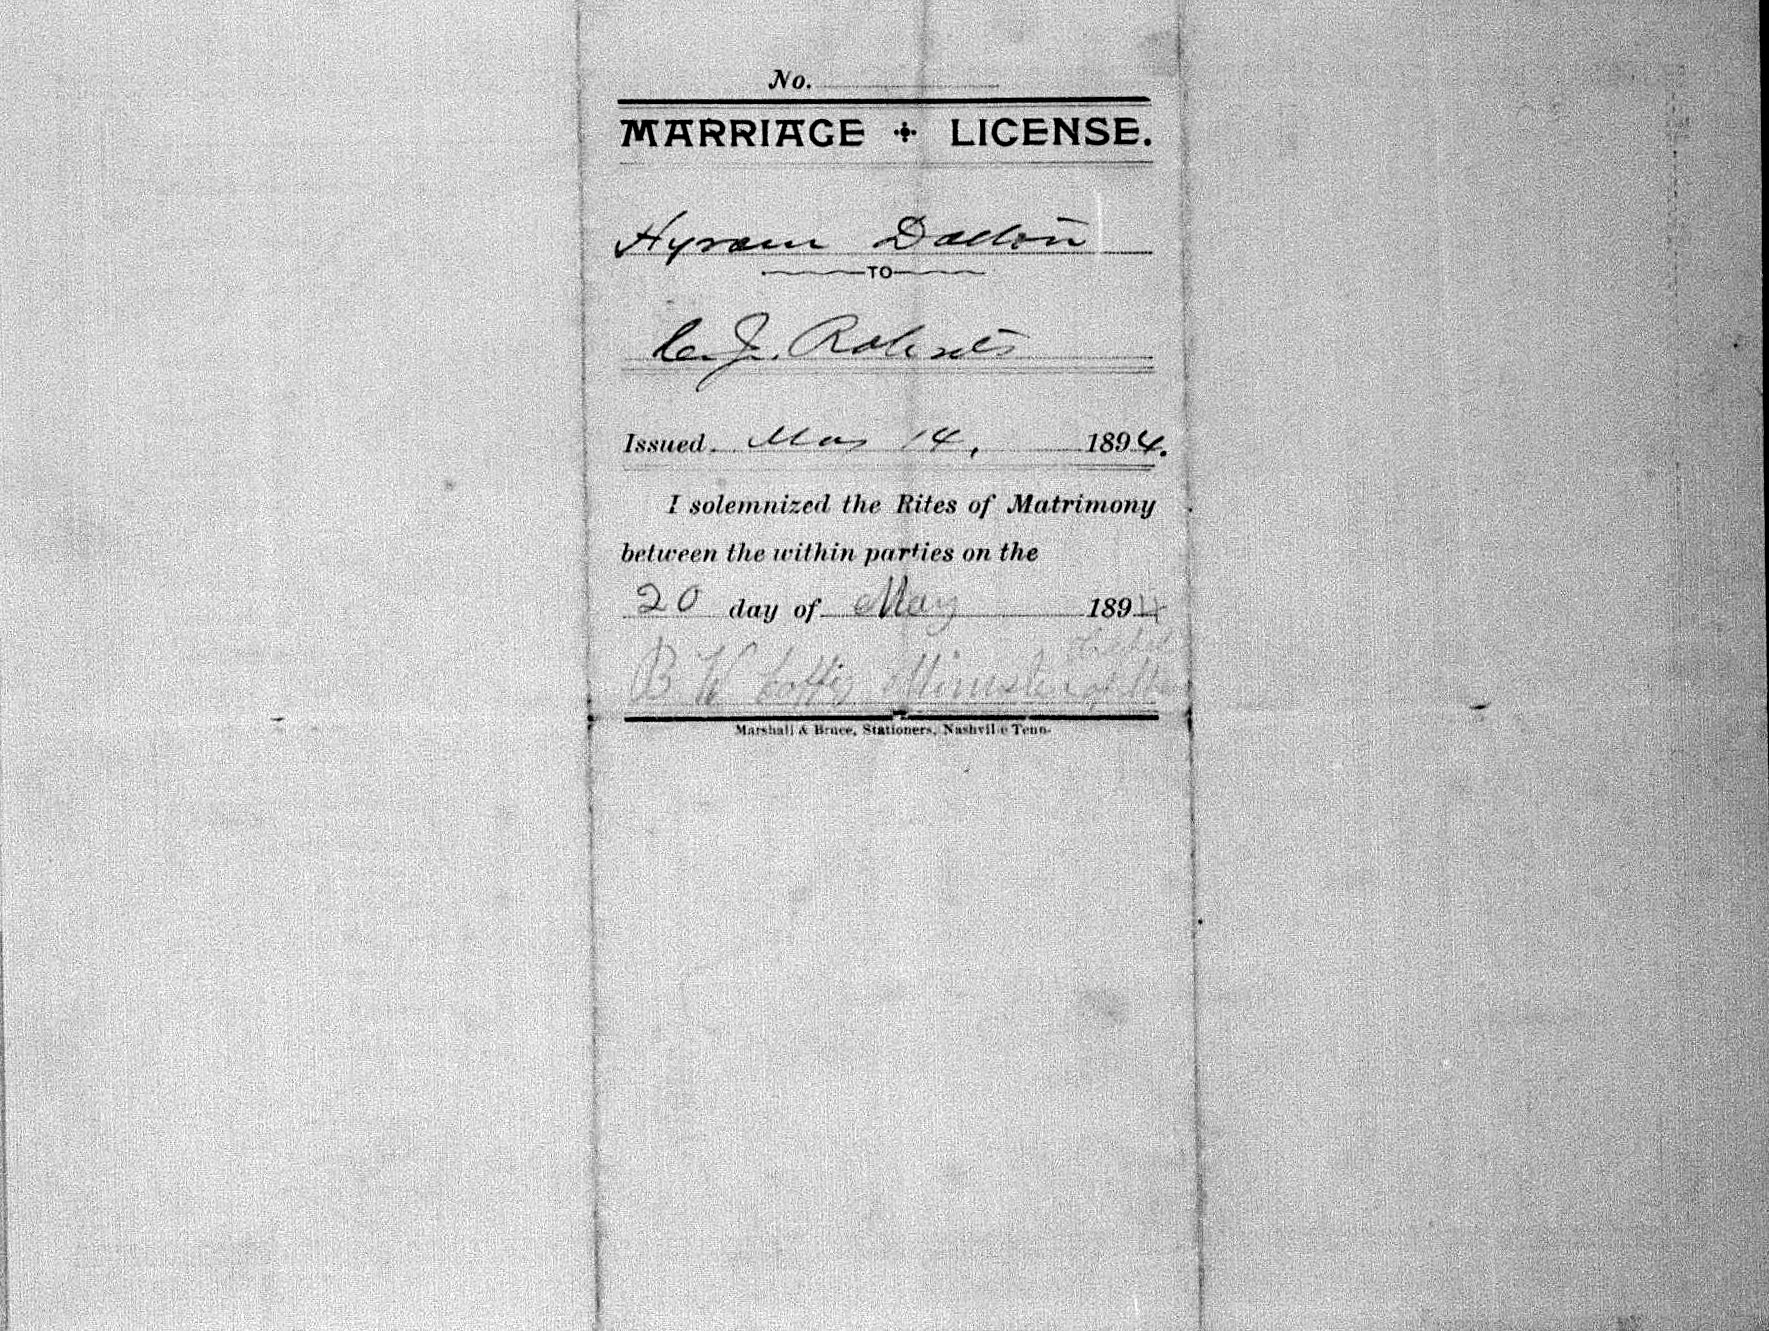 No.
MARRIAGE LICENSE.
Hyram Dalton
TO
C. J. Roberts
Issued May 14, 1894.
I solemnized the Rites of Matrimony
between the within parties on the
20 day of May 1894
B W Minister of the
Marshall & Bruce, Stationers, Nashville Tenn.